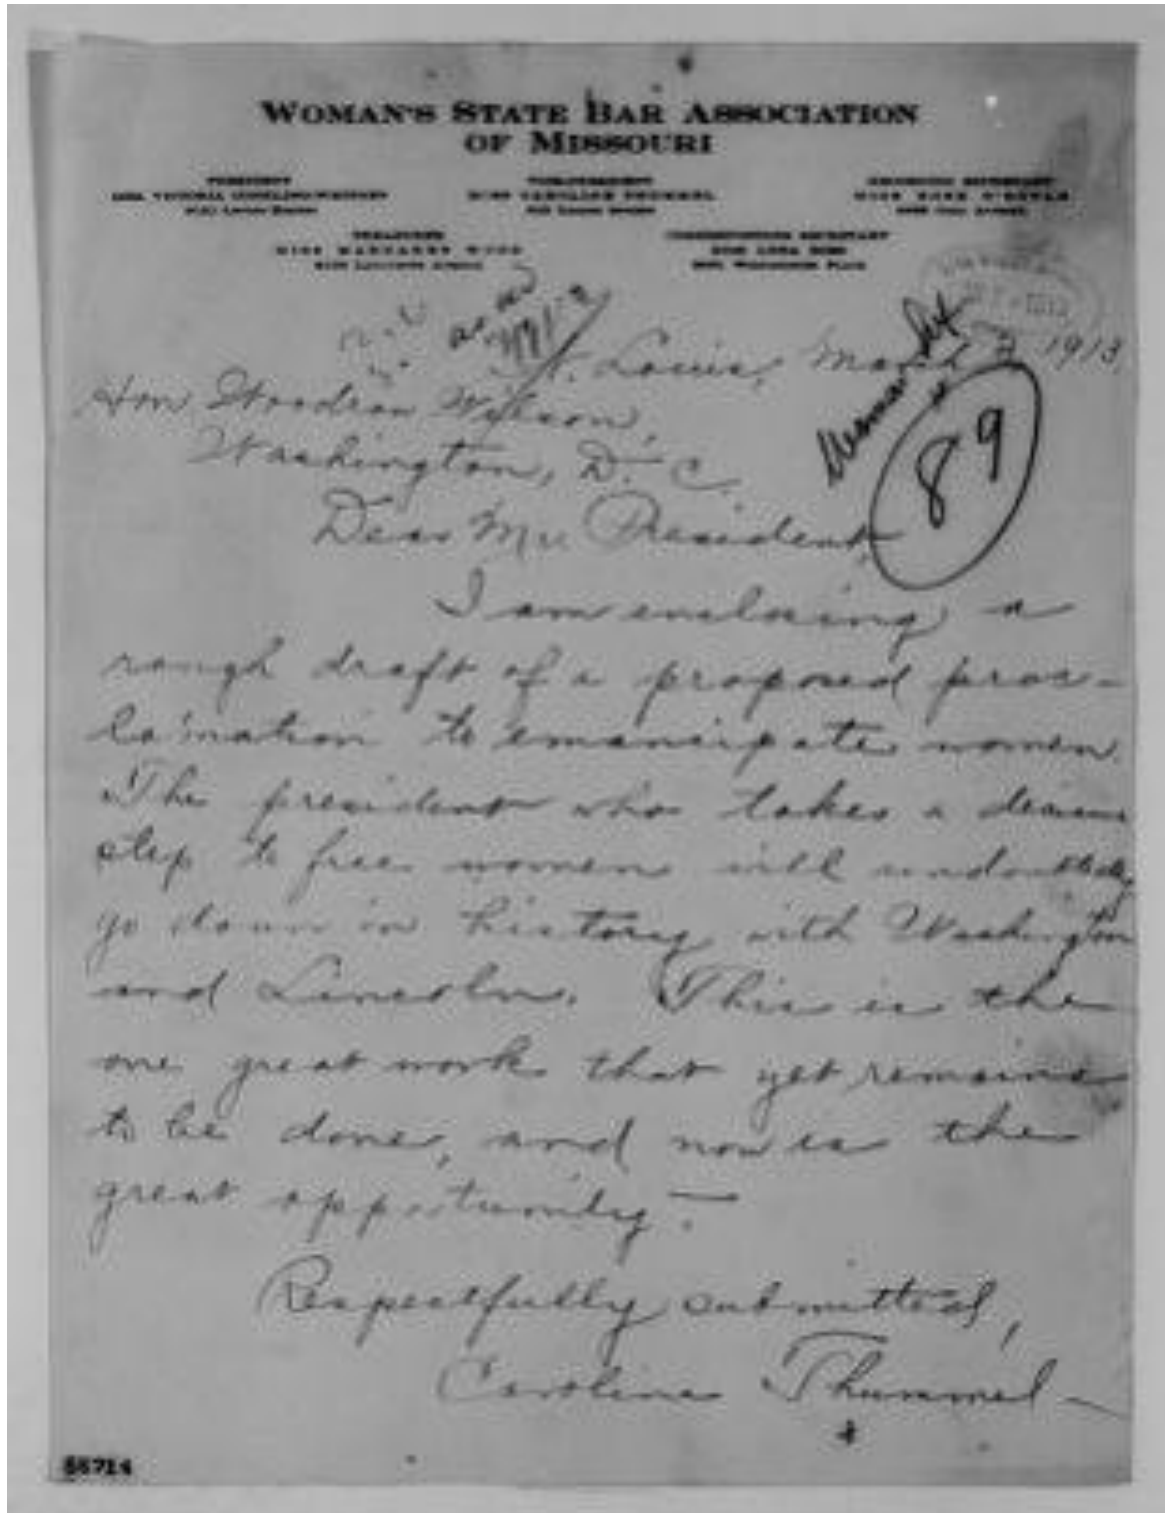 WOMAN'S STATE BAR ASSOCIATION
OF MISSOURI
PRESIDENT
VICE-PRESIDENT
MISS CAROLINE THUMMEL
TREASURER
MISS MARGARET WOOD
CORRESPONDING SECRETARY
St. Louis, March 1913
Hon Woodrow Wilson,
Washington, D. C.
89
Dear Mr. President,
I am enclosing a
rough draft of a proposed proc-
lamation to emancipate women.
The president who takes a decisive
step to free women will undoubtedly
go down in history with Washington
and Lincoln. This is the
one great work that yet remains
to be done, and now is the
great opportunity.
Respectfully submitted,
Caroline Thummel
55714